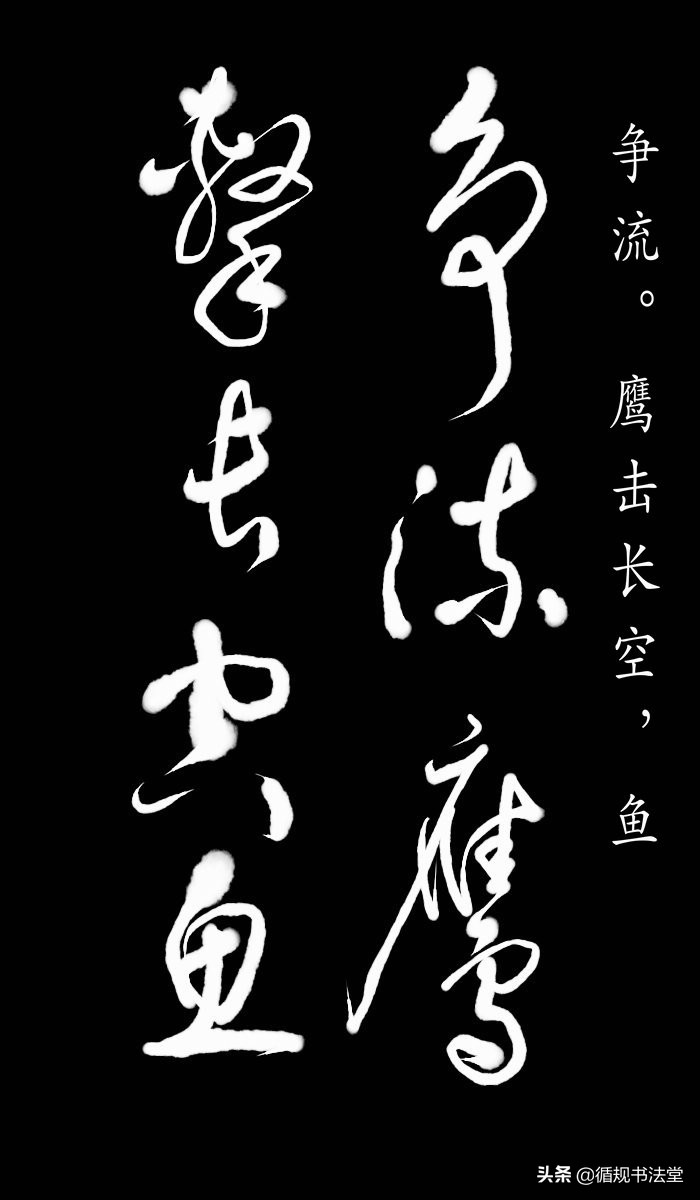 争流。鹰击长空，鱼
争流鹰
击长空鱼
头条 @循规书法堂